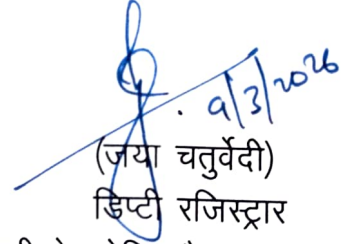 9/3/2026
(जया चतुर्वेदी)
डिप्टी रजिस्ट्रार